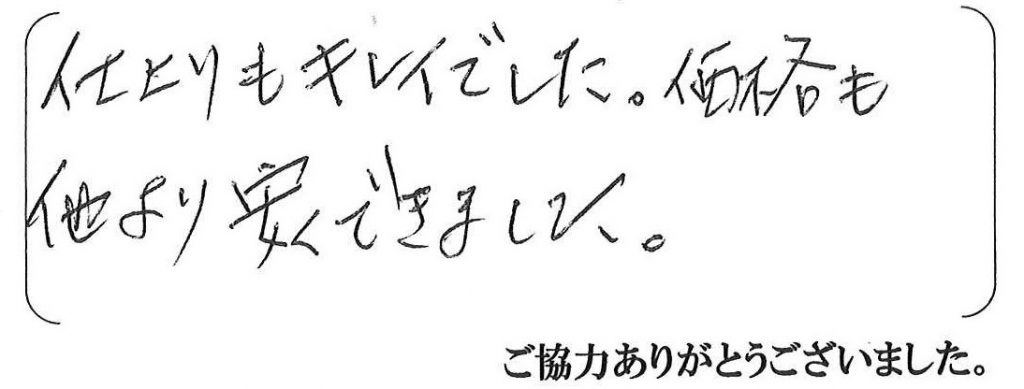 仕上りもキレイでした。価格も
他より安くできました。
ご協力ありがとうございました。